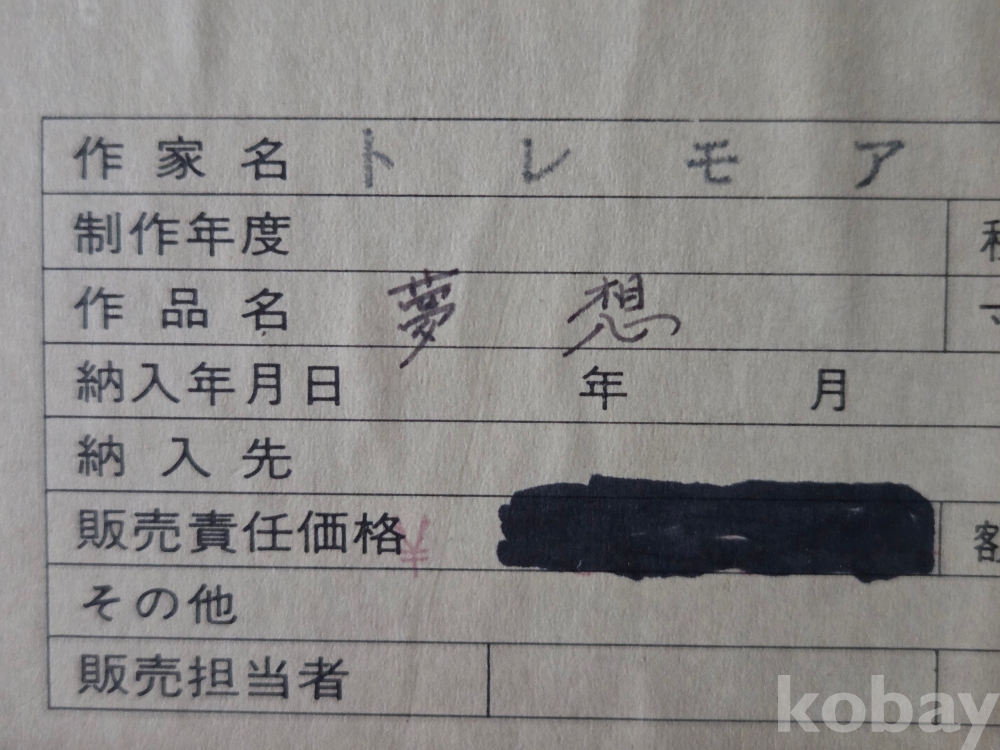 作家名 トレモア
制作年度
作品名 夢想
納入年月日 年 月
納入先
販売責任価格 ¥
その他
販売担当者
kobay